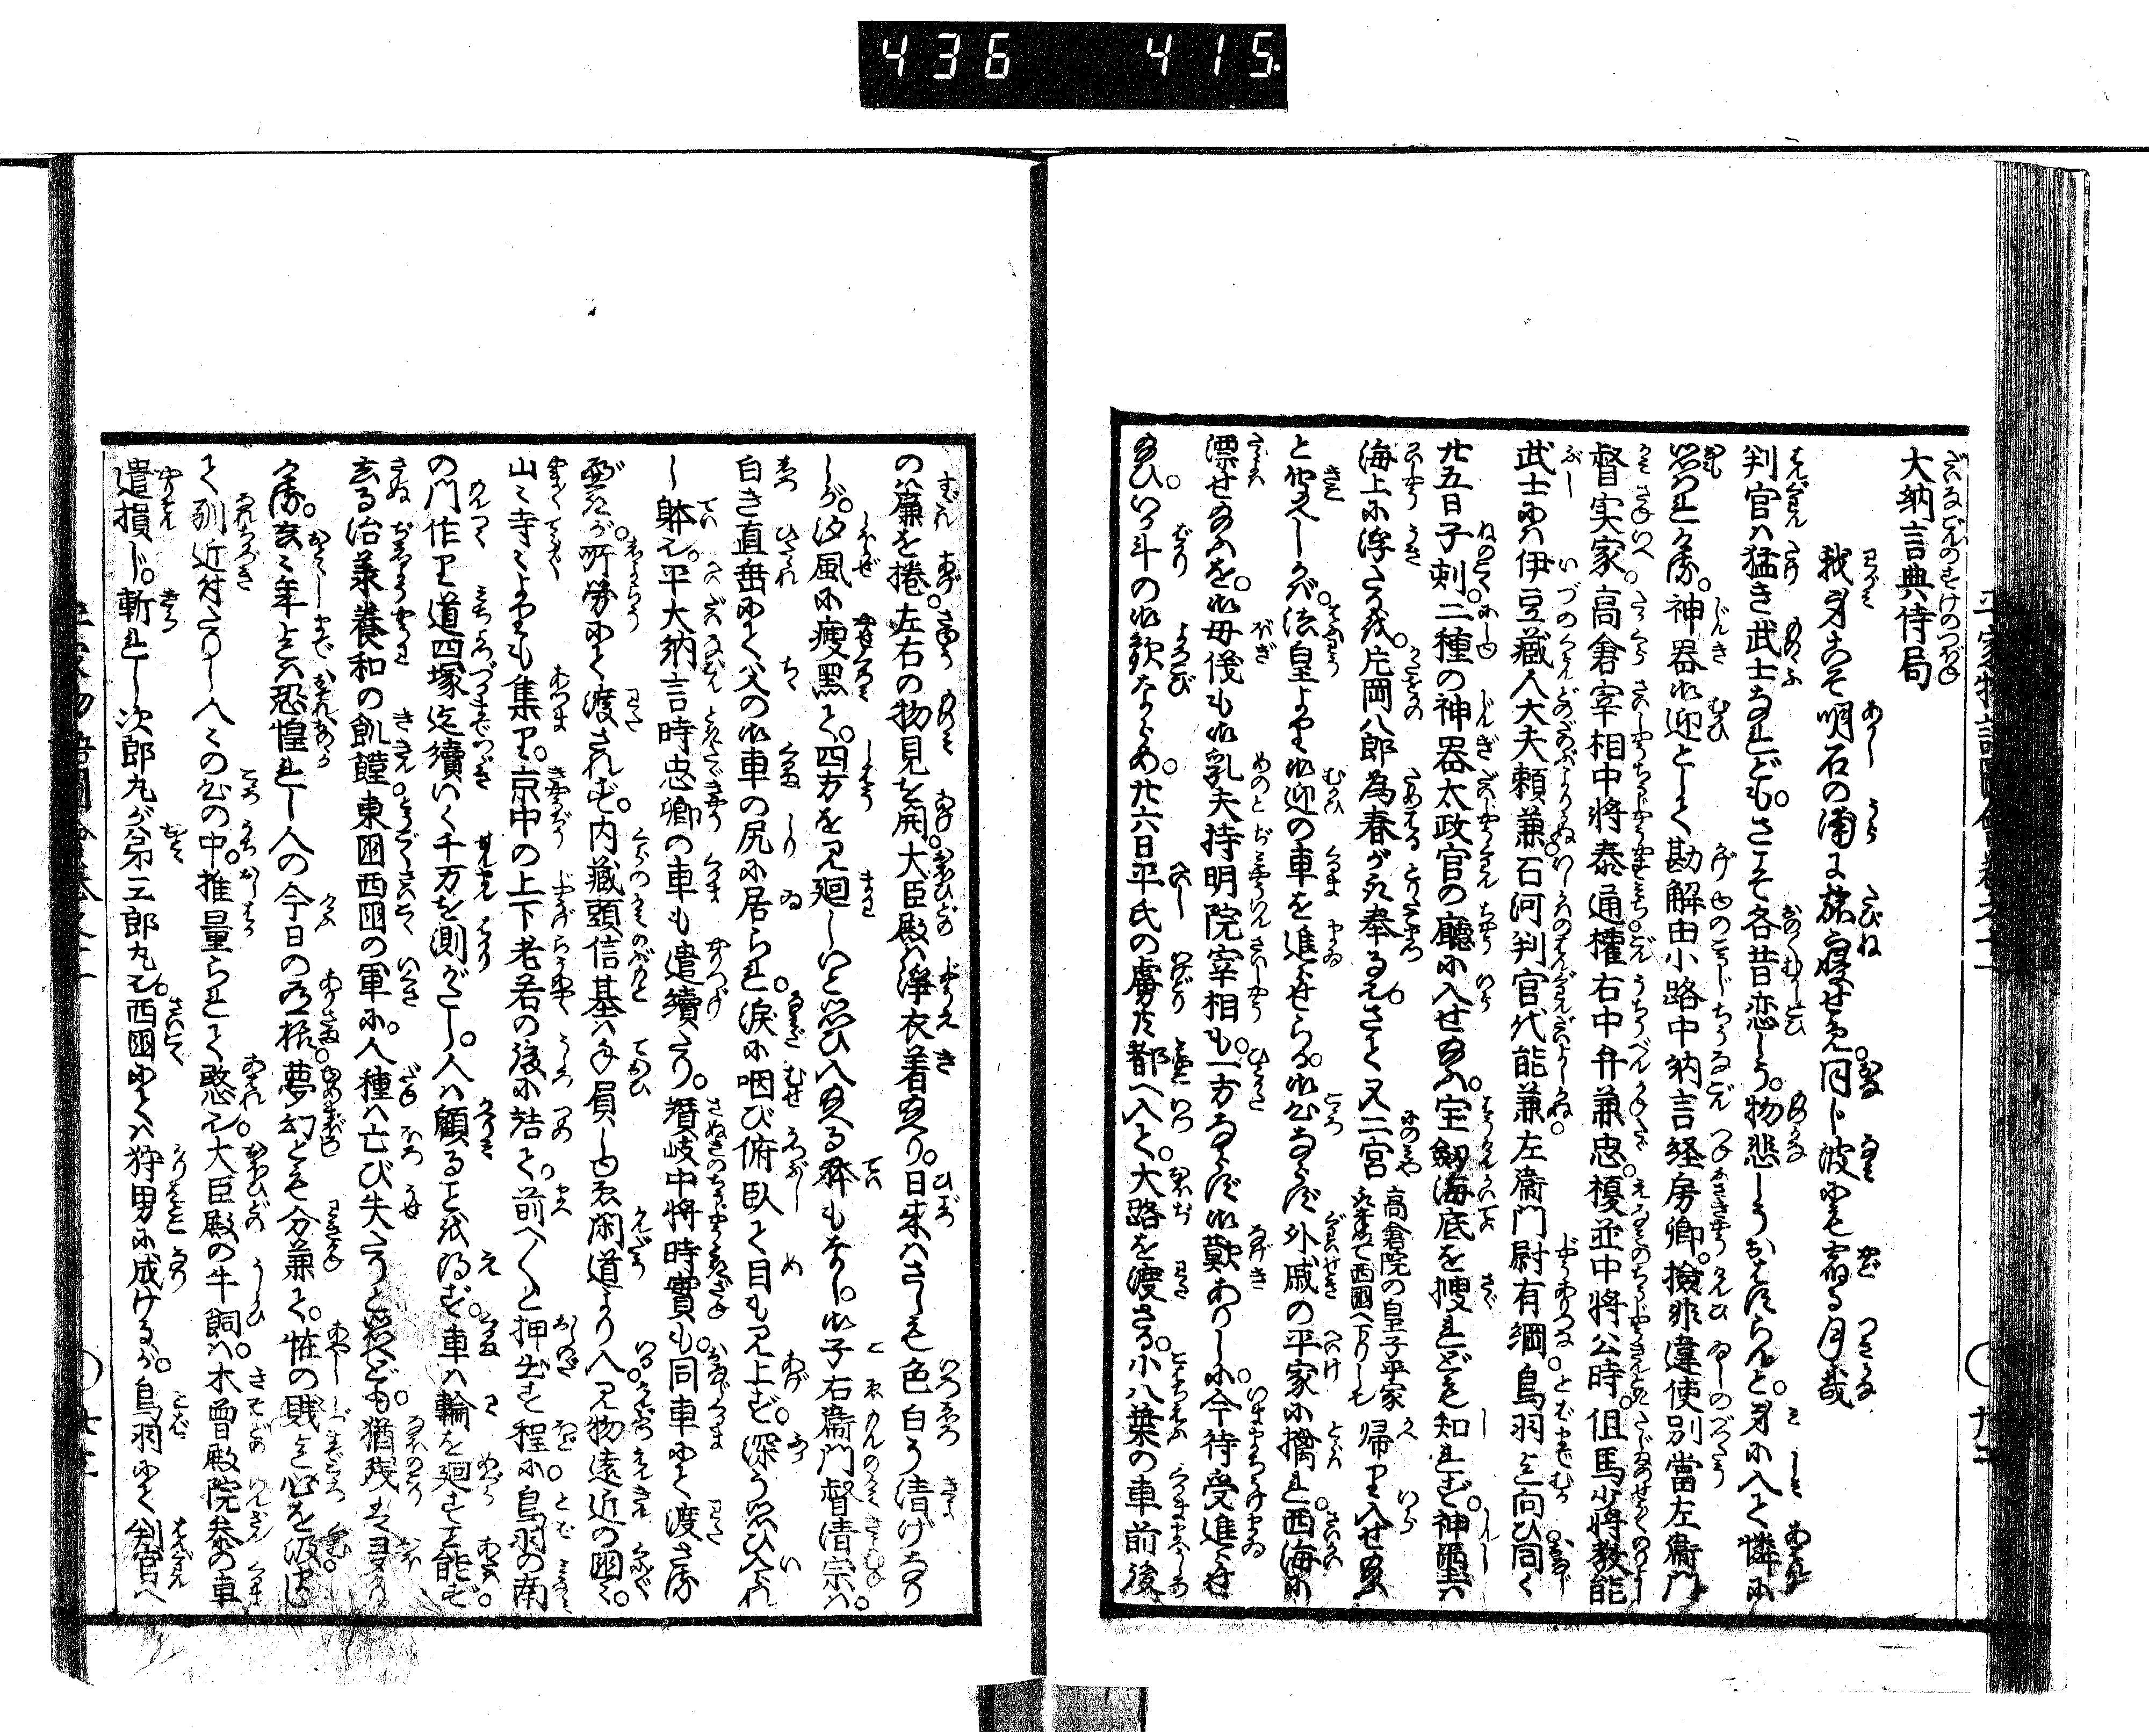 436 415.
大納言典侍局
我身こそ明石の浦に旅寝せめ同じ波にも宿る月哉
判官は猛き武士なれども。さこそ各昔恋しう。物悲しうおはすらんと。身に入て憐に
思はれける。神器御迎として勘解由小路中納言経房卿。撿非違使別當左衞門
督実家。高倉宰相中将泰通權右中弁兼忠榎並中将公時。但馬少将教能
武士には伊豆藏人大夫頼兼石河判官代能兼左衞門尉有綱鳥羽に向ひ同く
廿五日子刺。二種の神器太政官の廳に入せ給ふ。宝劔海底を捜れども知れず。神璽は
海上に浮たるを。片岡八郎為春が取奉る也。さて又二宮高倉院の皇子平家取奉て西國へ下りしも帰り入せ給ふ
と聞えしかば。法皇より御迎の車を進らせらる。御心ならず外戚の平家に擒れ。西海に
漂せ給ふを。御母儀も御乳夫持明院宰相も。一方ならず御歎ありしに。今待受進らせ
給ひ。いか斗の御歓ならめ。廿六日平氏の虜共都へ入て。大路を渡さる。小八葉の車前後
の簾を捲。左右の物見を開。大臣殿は浄衣着給へり。日来はさしも色白う清げなり
しが。汐風に痩黒て。四方を見廻しいと思ひ入給へる躰もなし。御子右衞門督清宗は。
白き直垂にて父の御車の尻に居られ。涙に咽び俯臥て目も見上ず。深う思ひ入られ
し躰也。平大納言時忠卿の車も遣續たり。讃岐中将時實も。同車にて渡さる
べかりしが。所労にて渡されず。内藏頭信基は手負しゆゑ閑道より入る。見物遠近の國々。
山々寺々よりも集り。京中の上下老若の後に詰て。前へ〳〵と押出す程に鳥羽の南
の門作り道四塚迄續いて千万を測がたし。人は顧ることを得ず。車は輪を廻すこと能ず
去る治承養和の飢饉東國西國の軍に。人種は亡び失たりと思へども。猶残は多かり
ける。去々年までは恐惶れし人の今日の有様夢幻とも分兼て。怪の賤も心を汲ば
て馴近付たりし人々の心の中。推量られて憖也。大臣殿の牛飼は。木曽殿院參の車
遣損じ。斬れし次郎丸が弟三郎丸也。西國にては狩男に成けるが。鳥羽にて判官へ